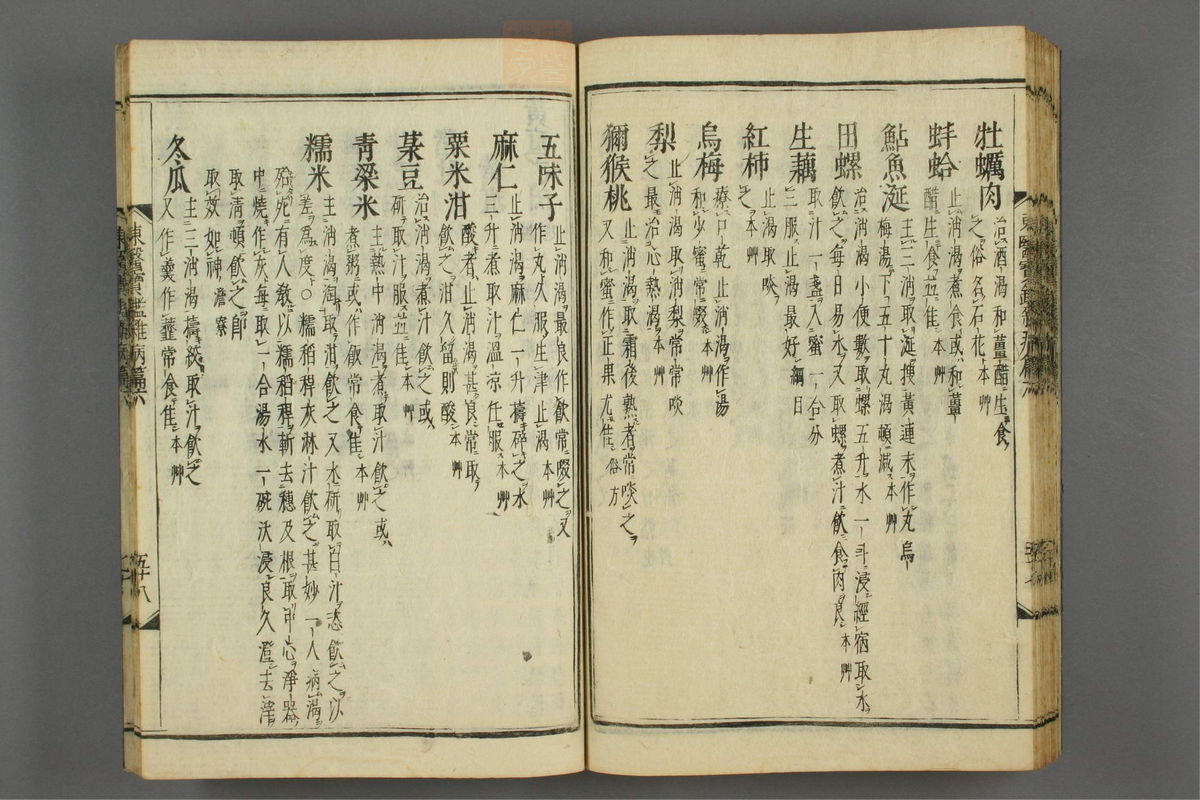 牡蠣肉
治酒渴和薑醋生食
之俗名石花 本艸
蚌蛤
止消渴煮食或和薑
醋生食並佳 本艸
鮎魚涎
主三消取涎搜黃連末作丸烏
梅湯下五十丸渴頓減 本艸
田螺
治消渴小便數取螺五升水一斗浸經宿取水
飲之每日易水又取螺煮汁飲食肉良 本艸
生藕
取汁一盞入蜜一合分
三服止渴最好 綱目
紅柿
止渴取啖
之 本艸
烏梅
療口乾止消渴作湯
和少蜜常啜 本艸
梨
止消渴取消梨常常啖
之最治心熱渴 本艸
獼猴桃
止消渴取霜後熟者常啖之
又和蜜作正果尤佳 俗方
五味子
止消渴最良作飲常啜之又
作丸久服生津止渴 本艸
麻仁
止消渴麻仁一升擣碎之水
三升煮取汁溫凉任服 本艸
粟米泔
酸者止消渴甚良常取
飲之泔久留則酸 本艸
菉豆
治消渴煮汁飲之或
研取汁服並佳 本艸
青粱米
主熱中消渴煮取汁飲之或
煮粥或作飯常食佳 本艸
糯米
主消渴淘取泔飲之又水研取白汁恣飲之以
差為度○糯稻稈灰淋汁飲之甚妙一人病渴
殆死有人教以糯稻稈斬去穗及根取中心淨器
中燒作灰每取一合湯水一碗沃浸良久澄去滓
取淸頓飲之卽
取效如神 澹寮
冬瓜
主三消渴擣絞取汁飲之
又作羹作虀常食佳 本艸
東醫寶鑑雜病篇六
五十八